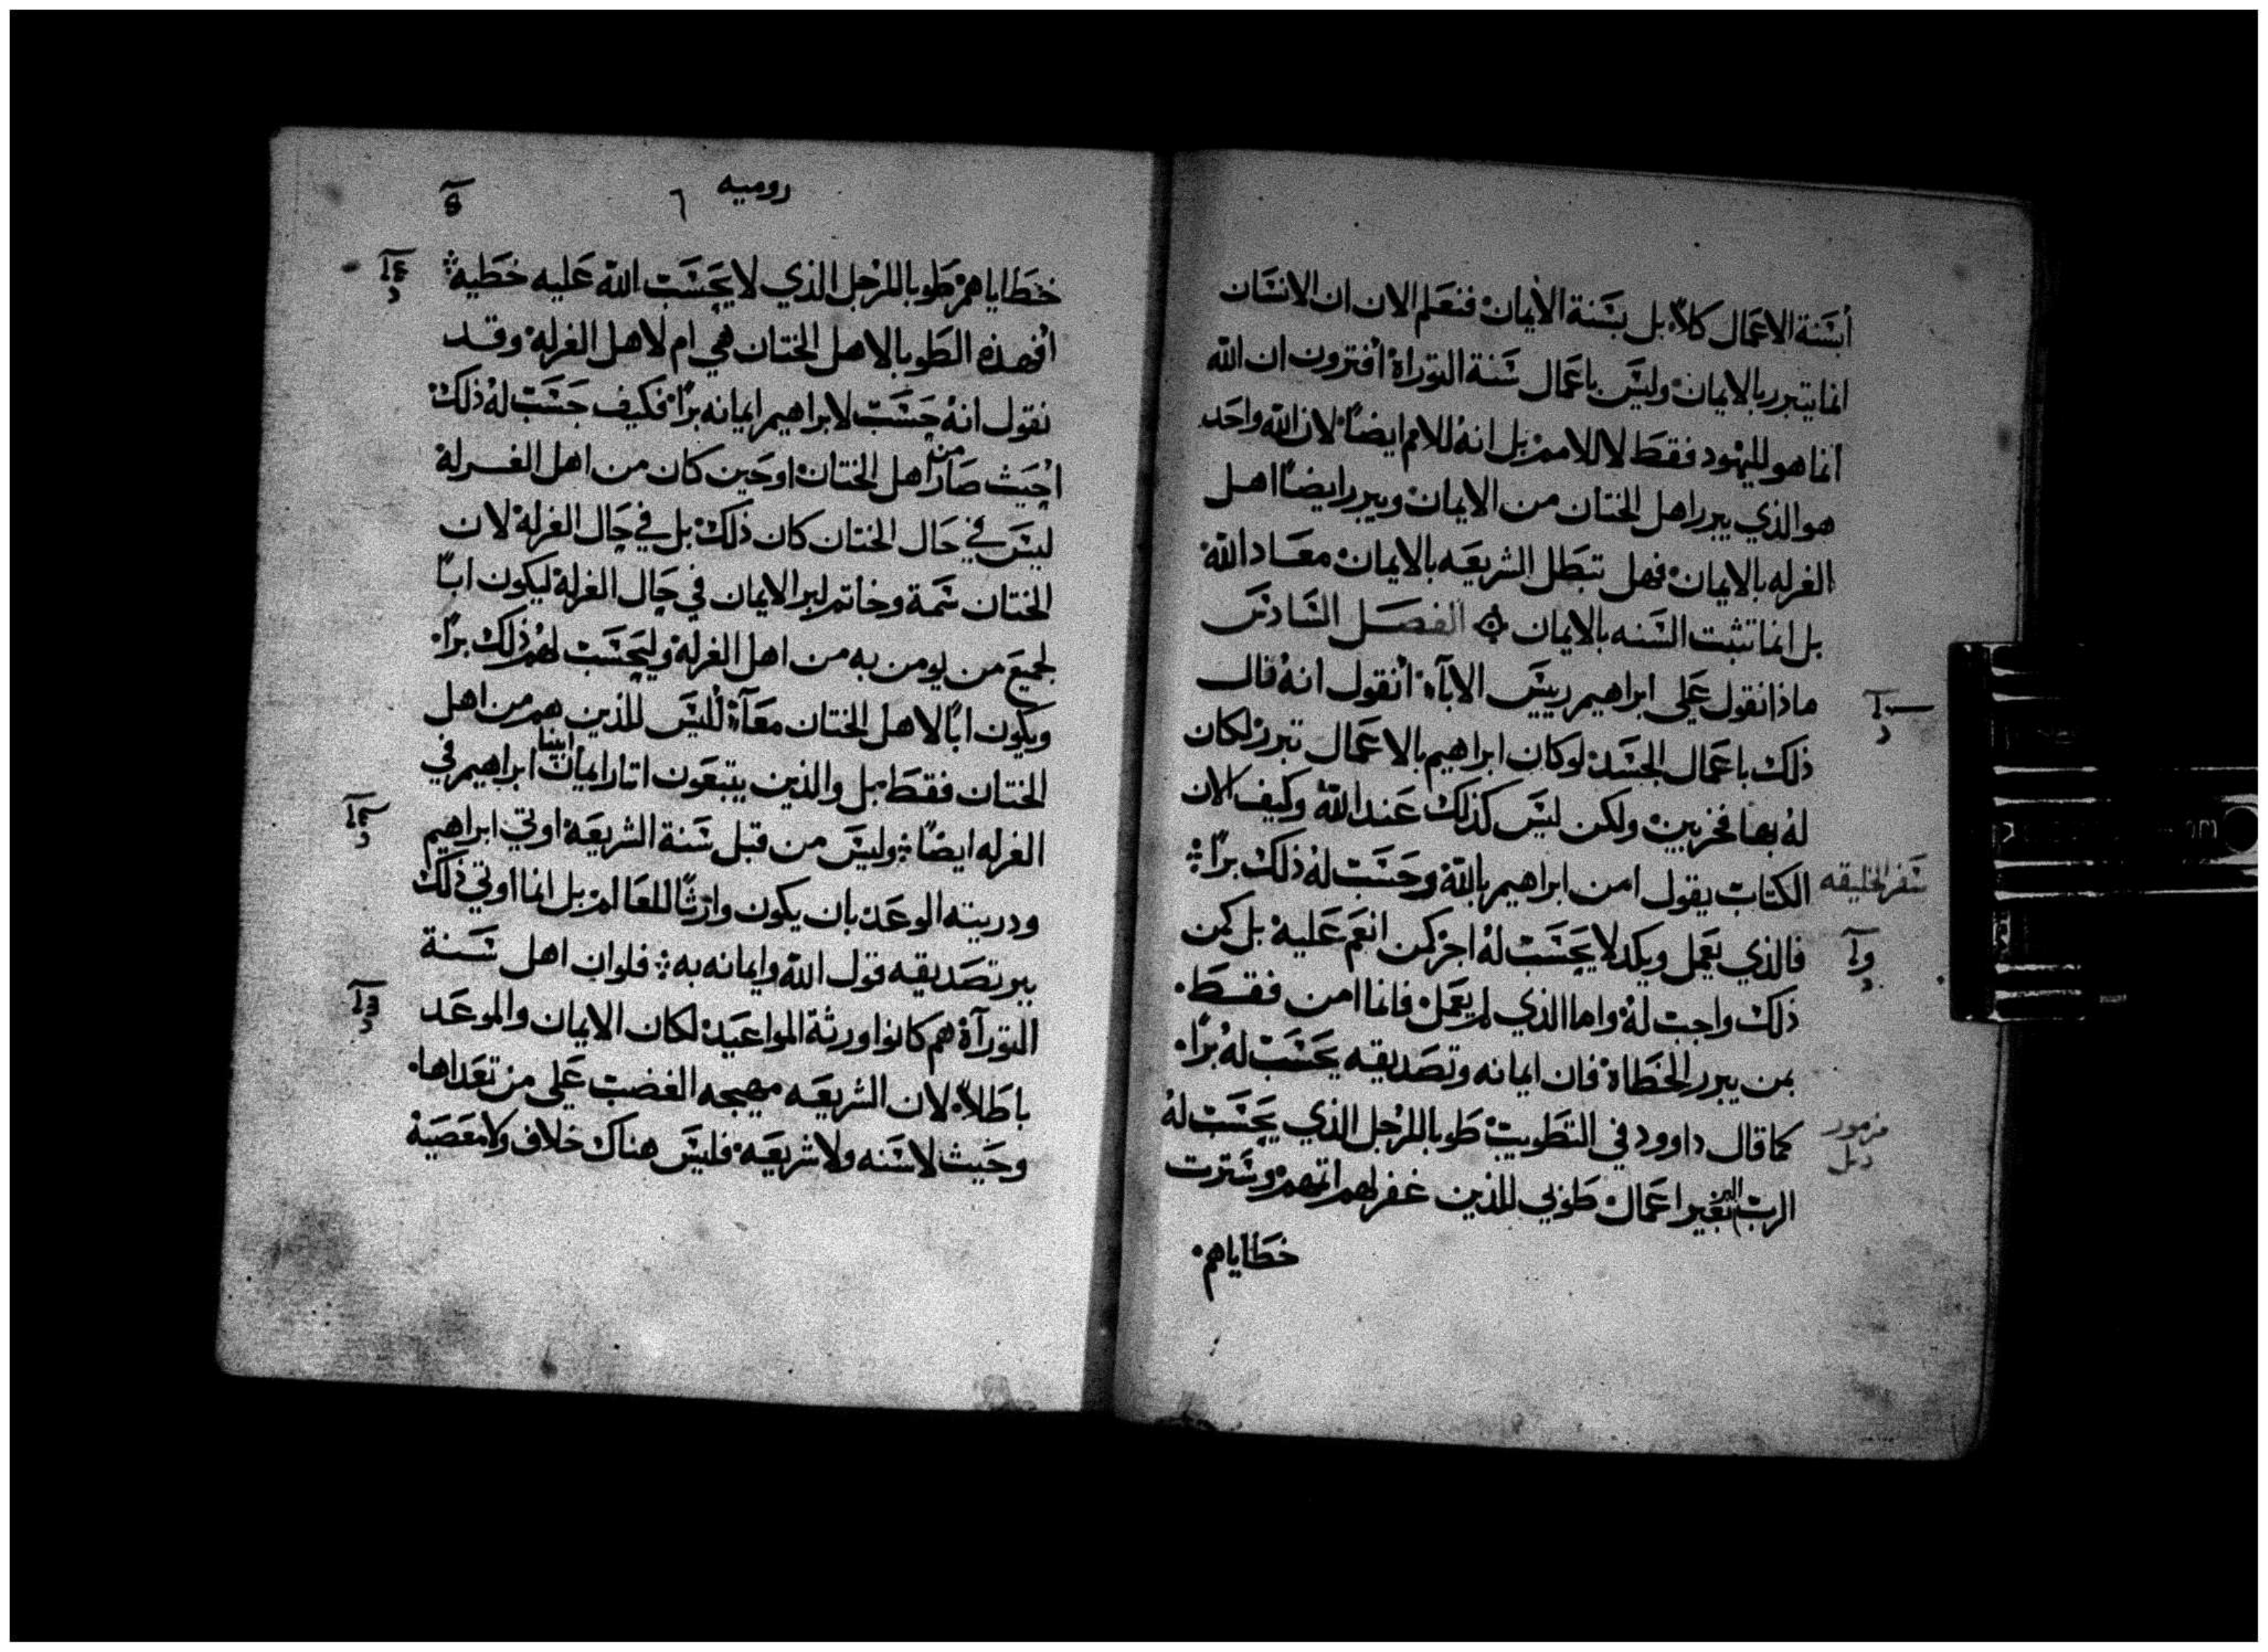 أبسنة الاعمال كلا بل بسنة الأيمان فنعلم الان ان الانسان
انما يتبرر بالايمان وليس باعمال سنة التوراة افترون ان الله
انما هو لليهود فقط لا للامم بل انه للامم ايضاً لان الله واحد
هو الذي يبرر اهل الختان من الايمان ويبرر ايضاً اهل
الغرله بالايمان فهل تبطل الشريعه بالايمان معاد الله
بل انما تثبت السنه بالايمان الفصل السادس
ماذا نقول على ابراهيم رييس الاباء انقول انه قال
ذلك باعمال الجسد لو كان ابراهيم بالاعمال تبرر لكان
له بها فخر ولكن ليس كذلك عند الله وكيف الان
سفر الخليقه
الكتاب يقول امن ابراهيم بالله وحسب له ذلك براً
فالذي يعمل ويكد لا يحسب له اجر كمن انعم عليه بل كمن
ذلك واجب له واما الذي لم يعمل فانما امن فقط
بمن يبرر الخطاة فان ايمانه وتصديقه يحسب له براً
مزمور
كما قال داوود في التطويب طوبا للرجل الذي يحسب له
الرب البر بغير اعمال طوبي للذين غفر لهم اثمهم وسترت
خطاياهم
روميه
٦
خطاياهم طوبا للرجل الذي لا يحسب الله عليه خطيه
افهذه الطوبا لاهل الختان هي ام لاهل الغرلة وقد
نقول انه حسب لابراهيم ايمانه براً فكيف حسب له ذلك
احيث صار من اهل الختان او حين كان من اهل الغرلة
ليس في حال الختان كان ذلك بل في حال الغرلة لان
الختان سمة وخاتم لبر الايمان في حال الغرلة ليكون اباً
لجميع من يومن به من اهل الغرلة وليحسب لهم ذلك براً
ويكون اباً لاهل الختان معاً ليس للذين هم من اهل
الختان فقط بل والذين يتبعون اثار ايمان ابينا ابراهيم في
الغرله ايضاً وليس من قبل سنة الشريعه اوتي ابراهيم
ودريته الوعد بان يكون وارثاً للعالم بل انما اوتي ذلك
ببر تصديقه قول الله وايمانه به فلو ان اهل سنة
التورآة هم كانوا ورثة المواعيد لكان الايمان والموعد
باطلاً لان الشريعه مهيجه الغضب على من تعداها
وحيث لا سنه ولا شريعه فليس هناك خلاف ولا معصية